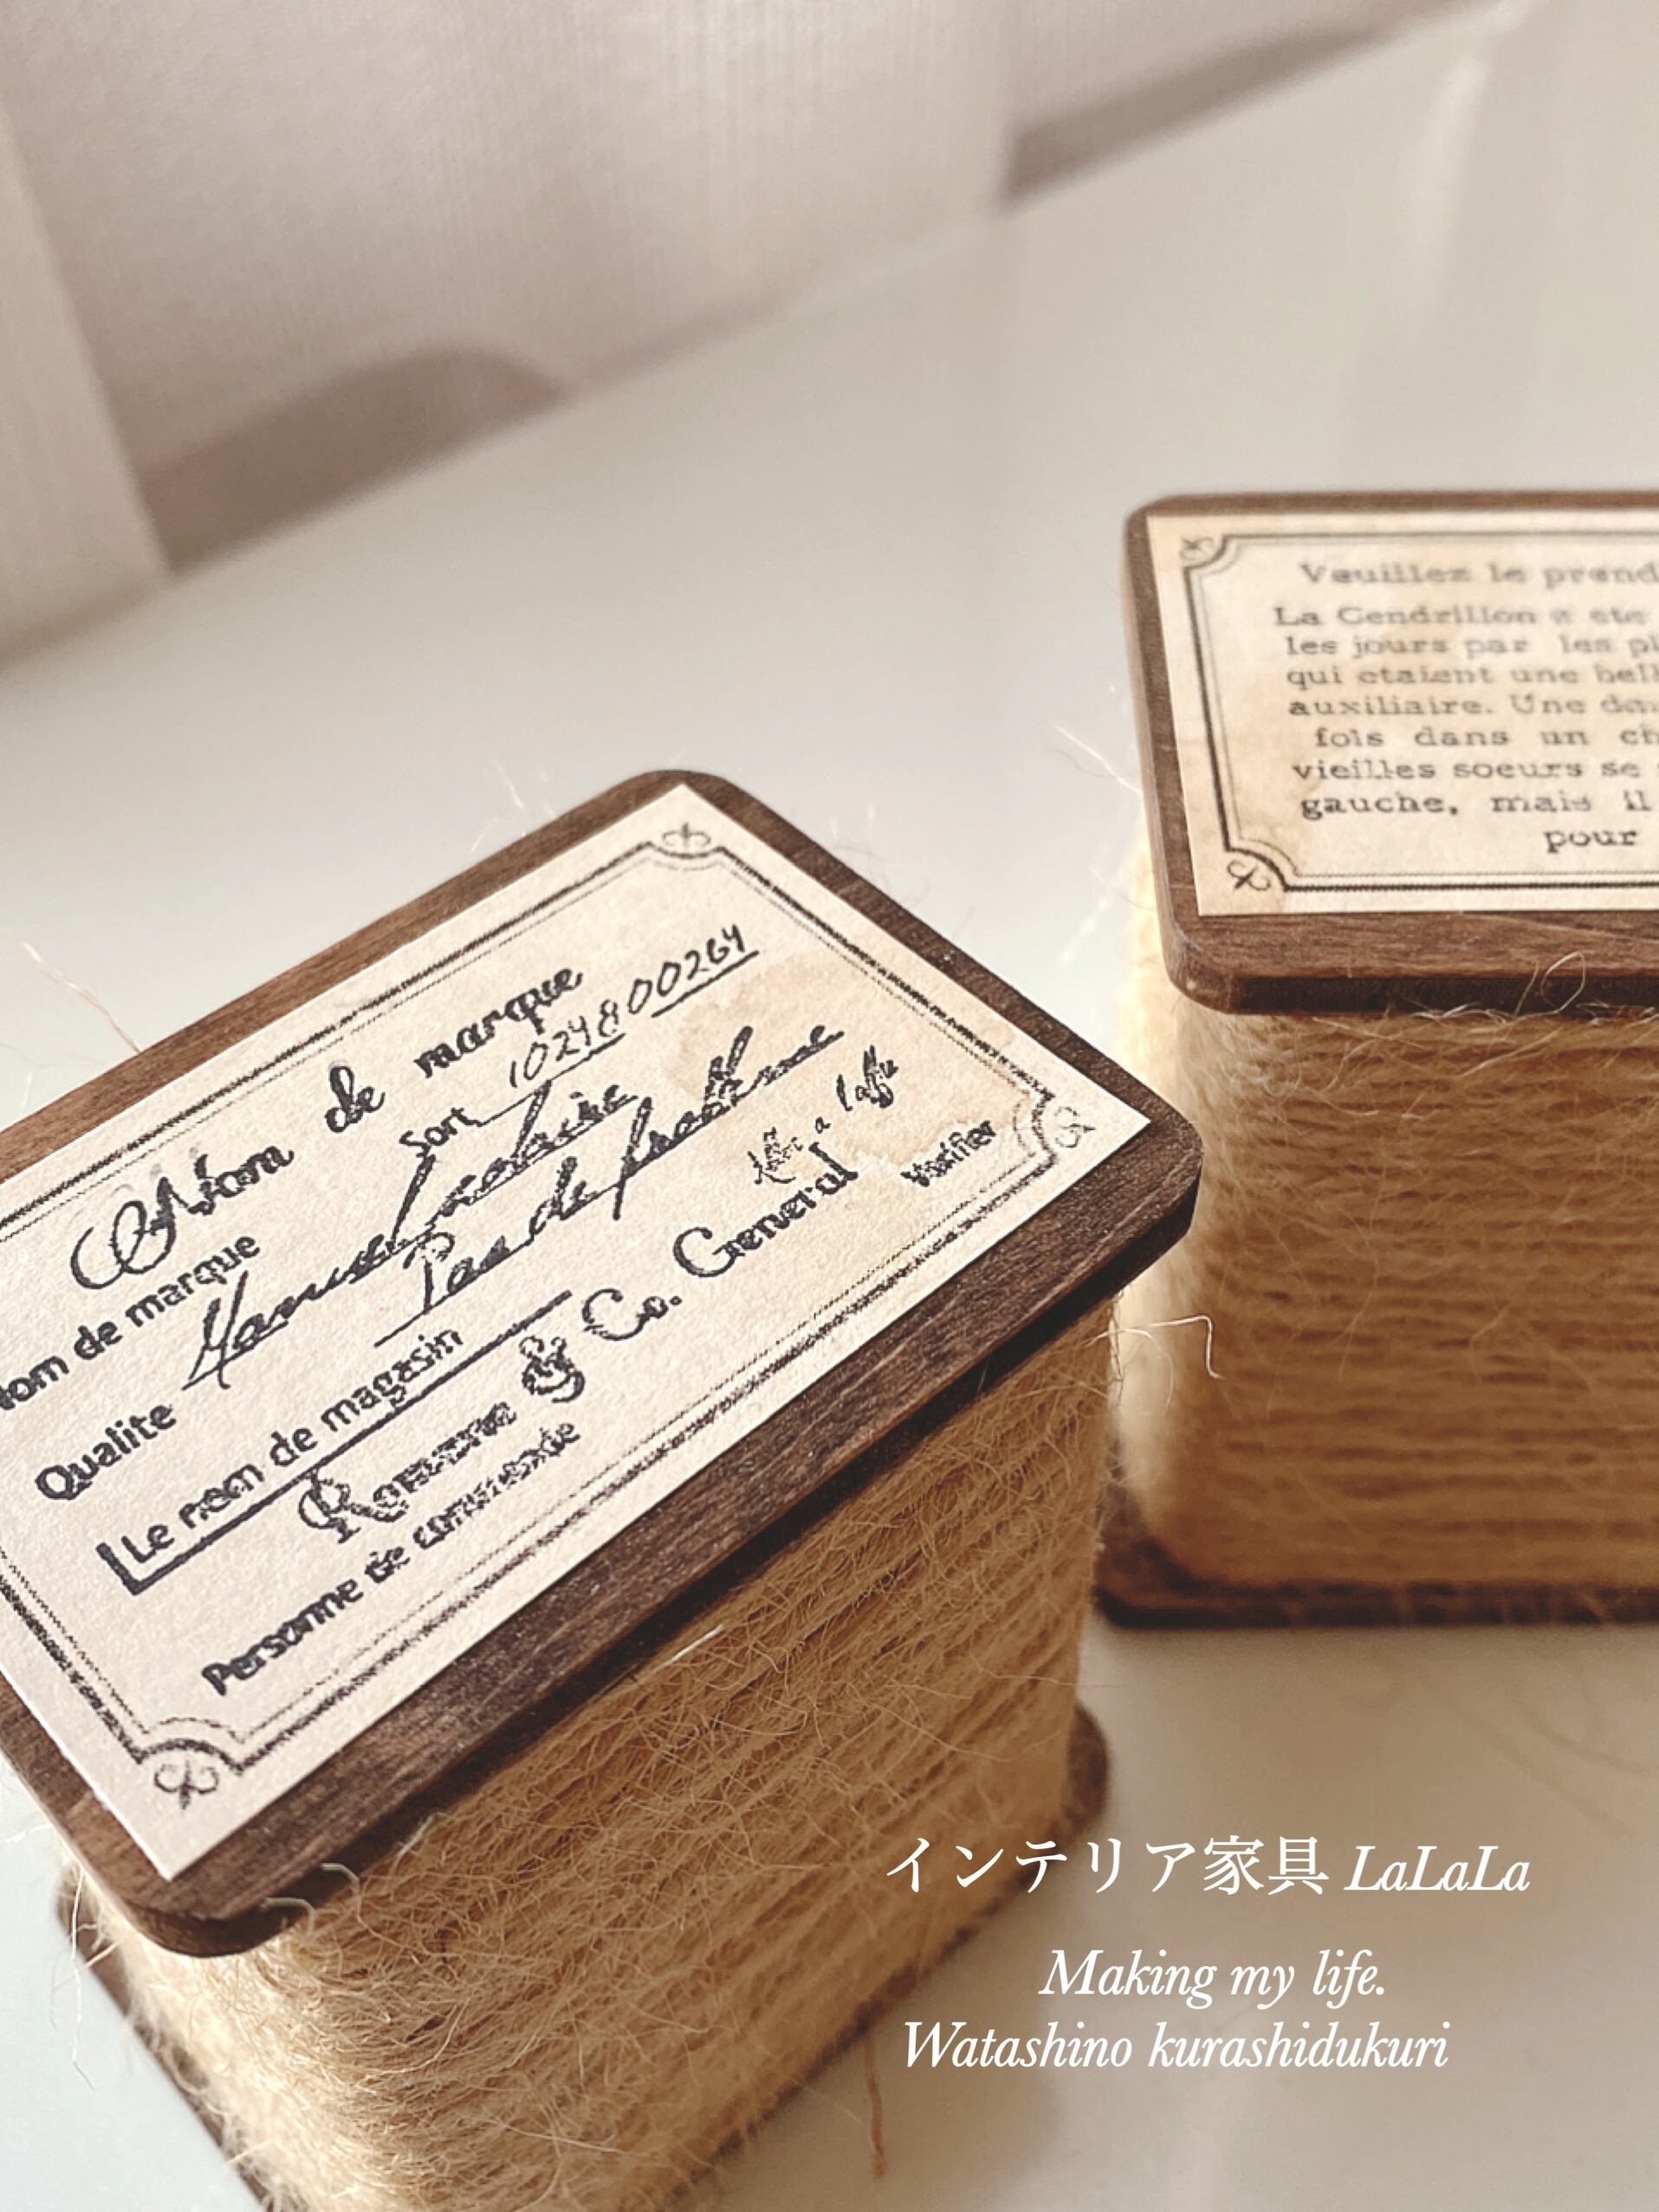 Nom de marque
Sort 1024800264
Nom de marque
Qualite
Le nom de magasin
& Co. General
Personne de commande
Verifier
Veuillez le prend
La Cendrillon a ete
les jours par les pl
qui etaient une bell
auxiliaire. Une
fois dans un ch
vieilles soeurs se
gauche, mais il
pour
インテリア家具 LaLaLa
Making my life.
Watashino kurashidukuri